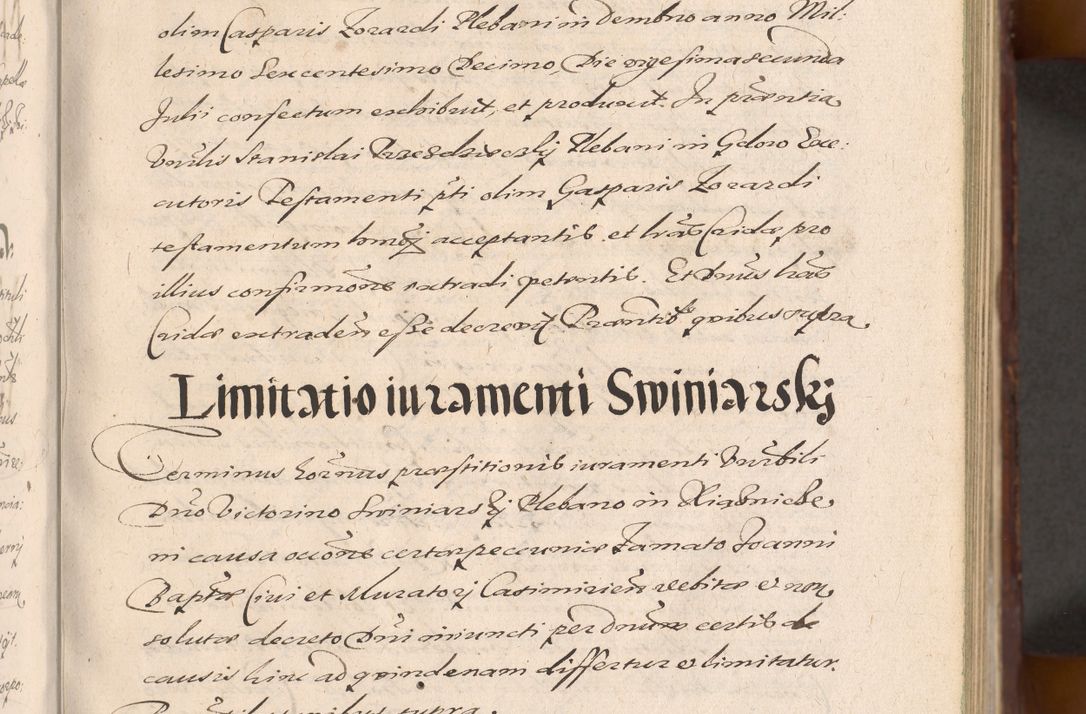 olim Casparis Zorardi Plebani in Dembno anno Mil:
lesimo Sexcentesimo Decimo, Die vigesima secunda
Julii confectum exhibuit, et produxit. In prӕntia
Vnrlis Stanislai Plebani in Gdoro Exe:
cutoris Testamenti pti olim Gasparis Zorardi
testamentum acceptantis et lras Cridӕ pro
illius confirmone extradi petentis. Et Dnus lras
Cridӕ extraden esse decrevit Prӕntibs quibus supra
Limitatio iuramenti Swiniarskj
Terminus hornus prӕstitionis iuramenti Vnrbili
Dno Victorino Swiniarskj Plebano in
in causa occone certӕ pecuniӕ Famato Joanni
Baptӕ Civi et Muratorj Casimirien debitӕ et non
solutӕ decreto Dni iniuncti per dnum certis de
causis hinc ad quindenam differtur et limitatur.
quibus supra.